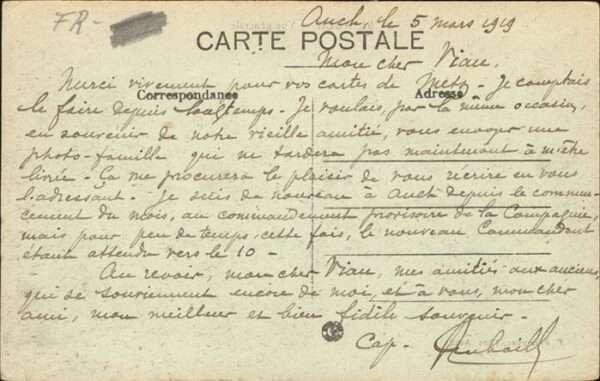 FR-
Auch, le 5 mars 1919
CARTE POSTALE
Mon cher Viau,
Merci vivement pour vos cartes de Metz. Je comptais
Correspondance
Adresse
le faire depuis longtemps. Je voulais, par la même occasion,
en souvenir de notre vieille amitié, vous envoyer une
photo-famille qui ne tardera pas maintenant à m'être
livrée. Ça me procurera le plaisir de vous récrire en vous
l'adressant. Je suis de nouveau à Auch depuis le commen-
cement du mois, au commandement provisoire de la Compagnie,
mais pour peu de temps cette fois, le nouveau Commandant
étant attendu vers le 10 -
Au revoir, mon cher Viau, mes amitiés aux anciens,
qui se souviennent encore de moi, et à vous, mon cher
ami, mon meilleur et bien fidèle souvenir.
Cap.